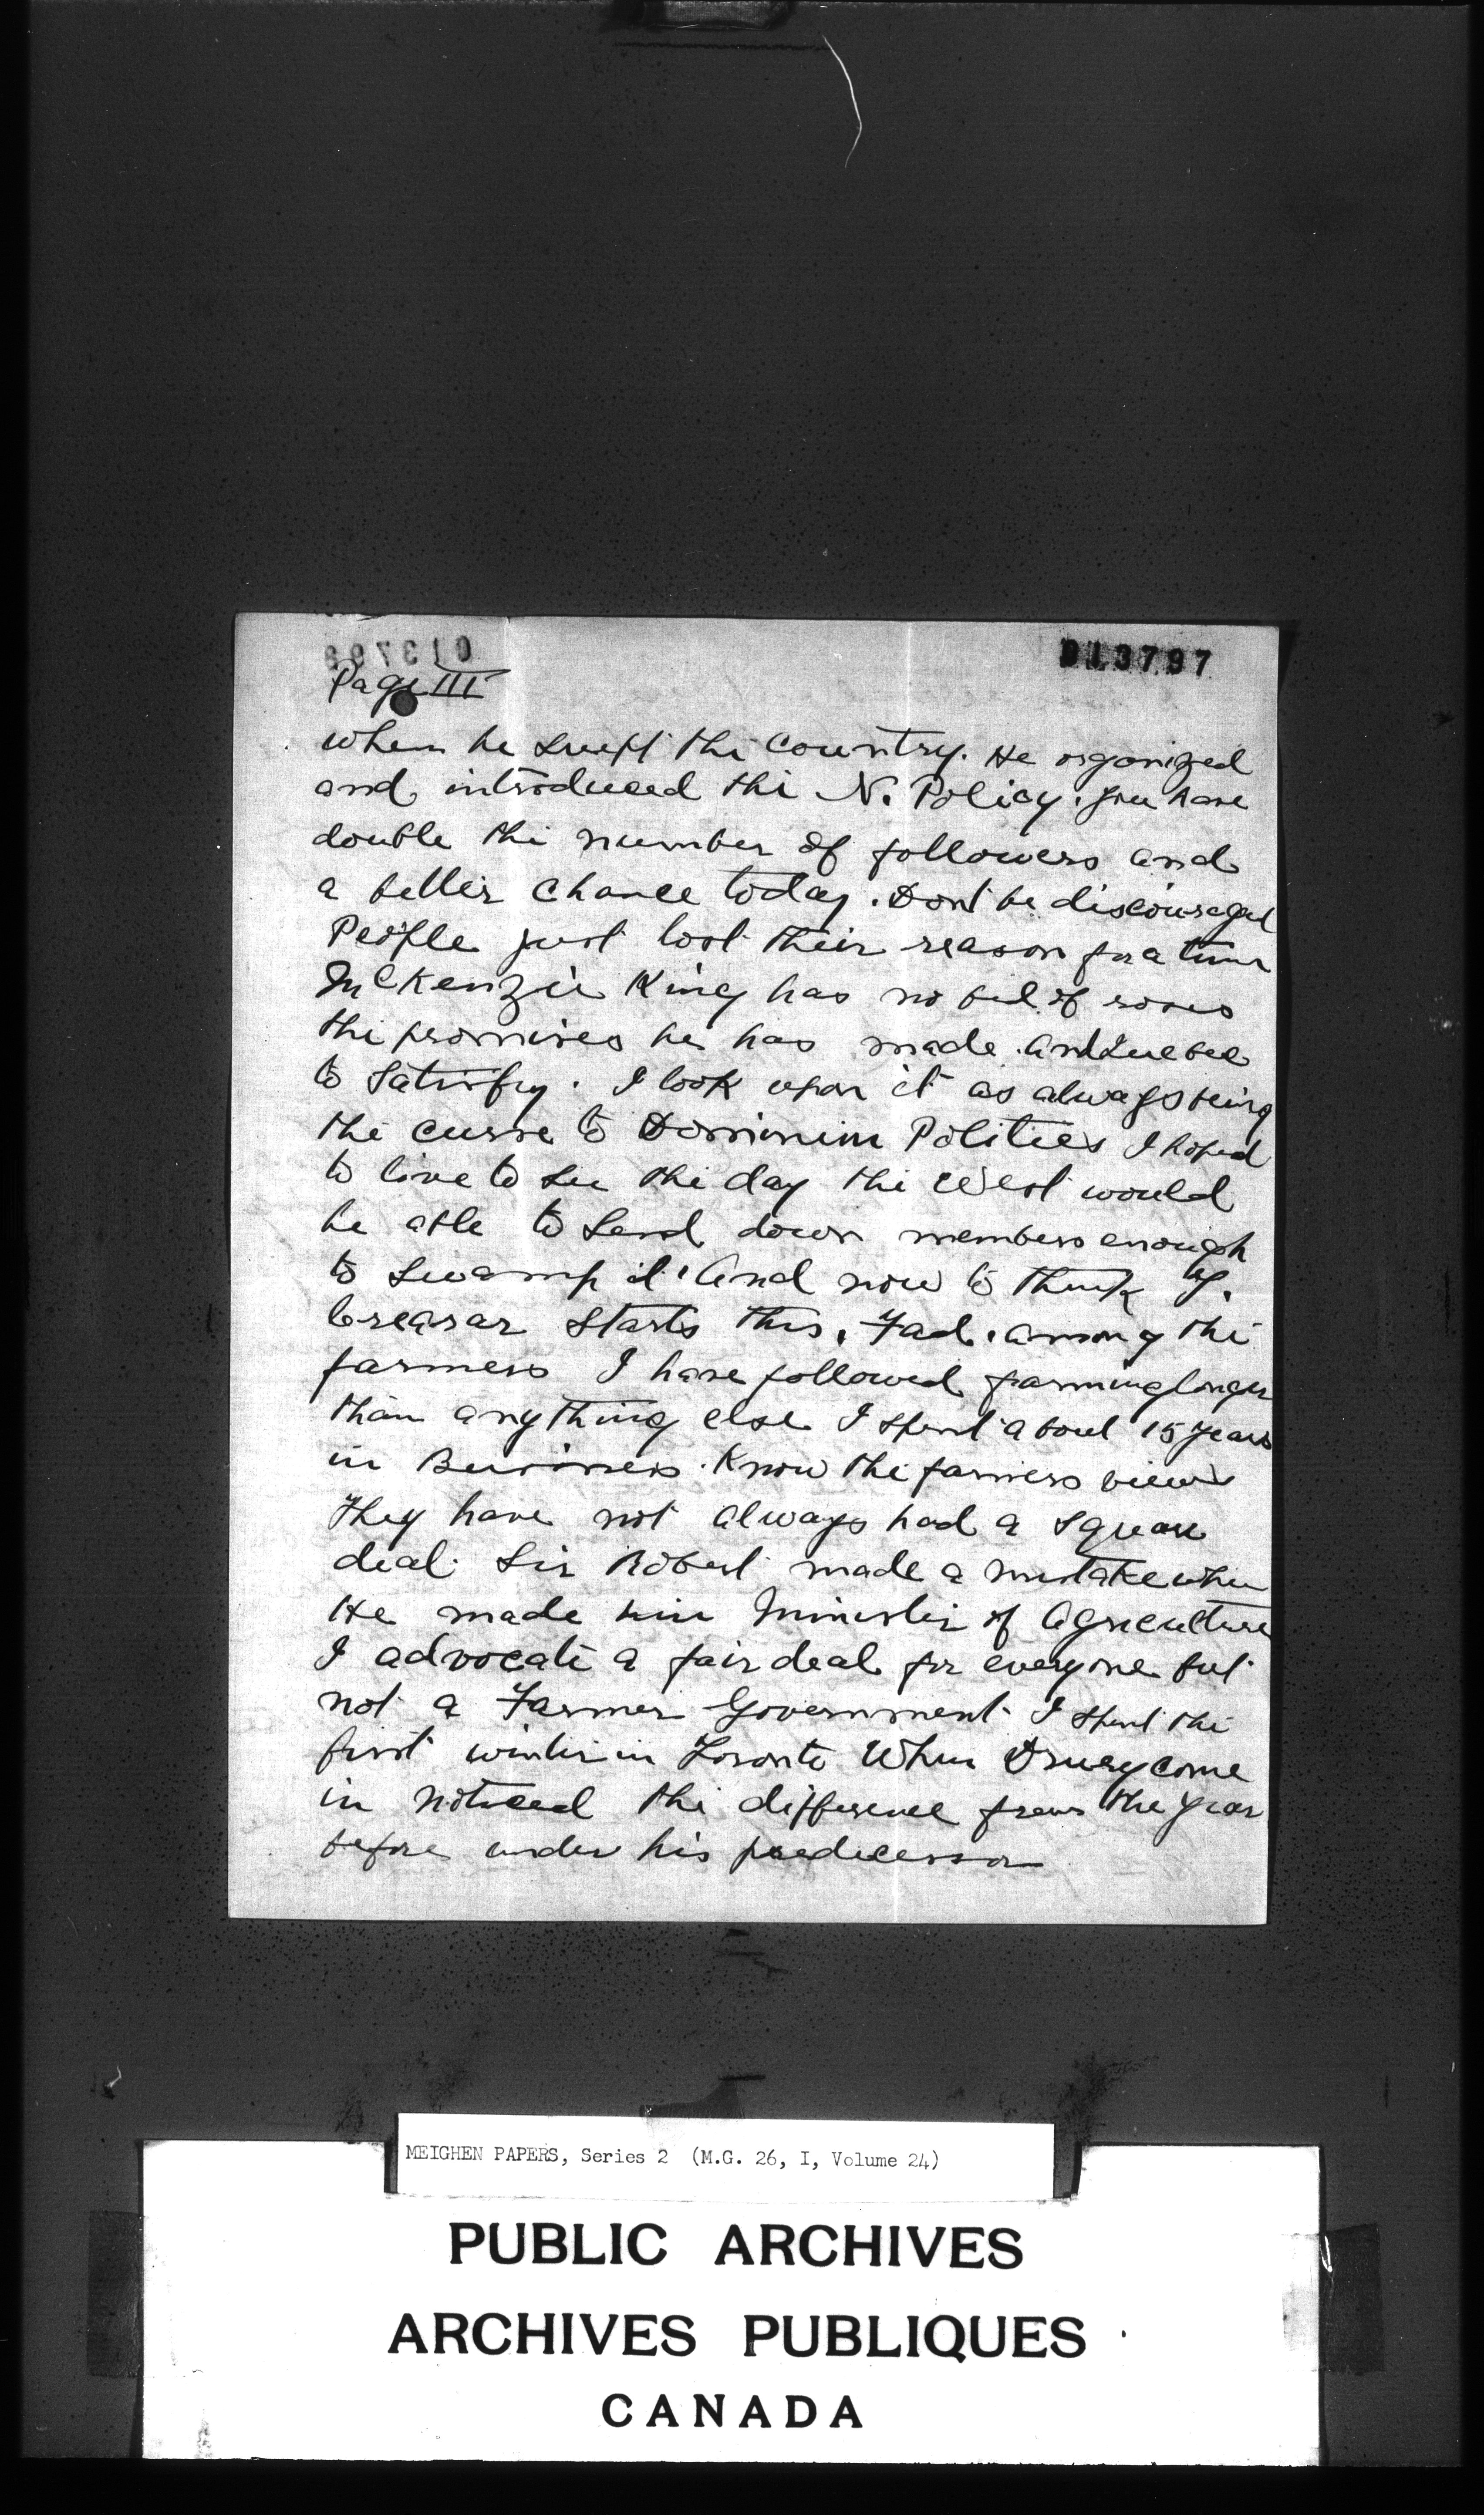 013797
Page III
when he swept the Country. He organized
and introduced the N. Policy. you have
double the number of followers and
a better chance today. Dont be discouraged
People just lost their reason for a time
McKenzie King has no bed of roses
the promises he has made and Quebec
to satisfy. I look upon it as always being
the curse to Dominion Politics I hoped
to live to see the day the West would
be able to send down members enough
to swamp it. And now to think of.
Creagrar starts this. Fad. among the
farmers I have followed farming longer
than anything else I spent about 15 years
in Business. Know the farmers views
They have not always had a square
deal. Sir Robert made a mistake when
He made him Minister of Agriculture
I advocate a fair deal for everyone but
not a Farmer Government I spent the
first winter in Toronto When Drury come
in noticed the difference from the year
before under his predecessor
MEIGHEN PAPERS, Series 2 (M.G. 26, I, Volume 24)
PUBLIC ARCHIVES
ARCHIVES PUBLIQUES
CANADA